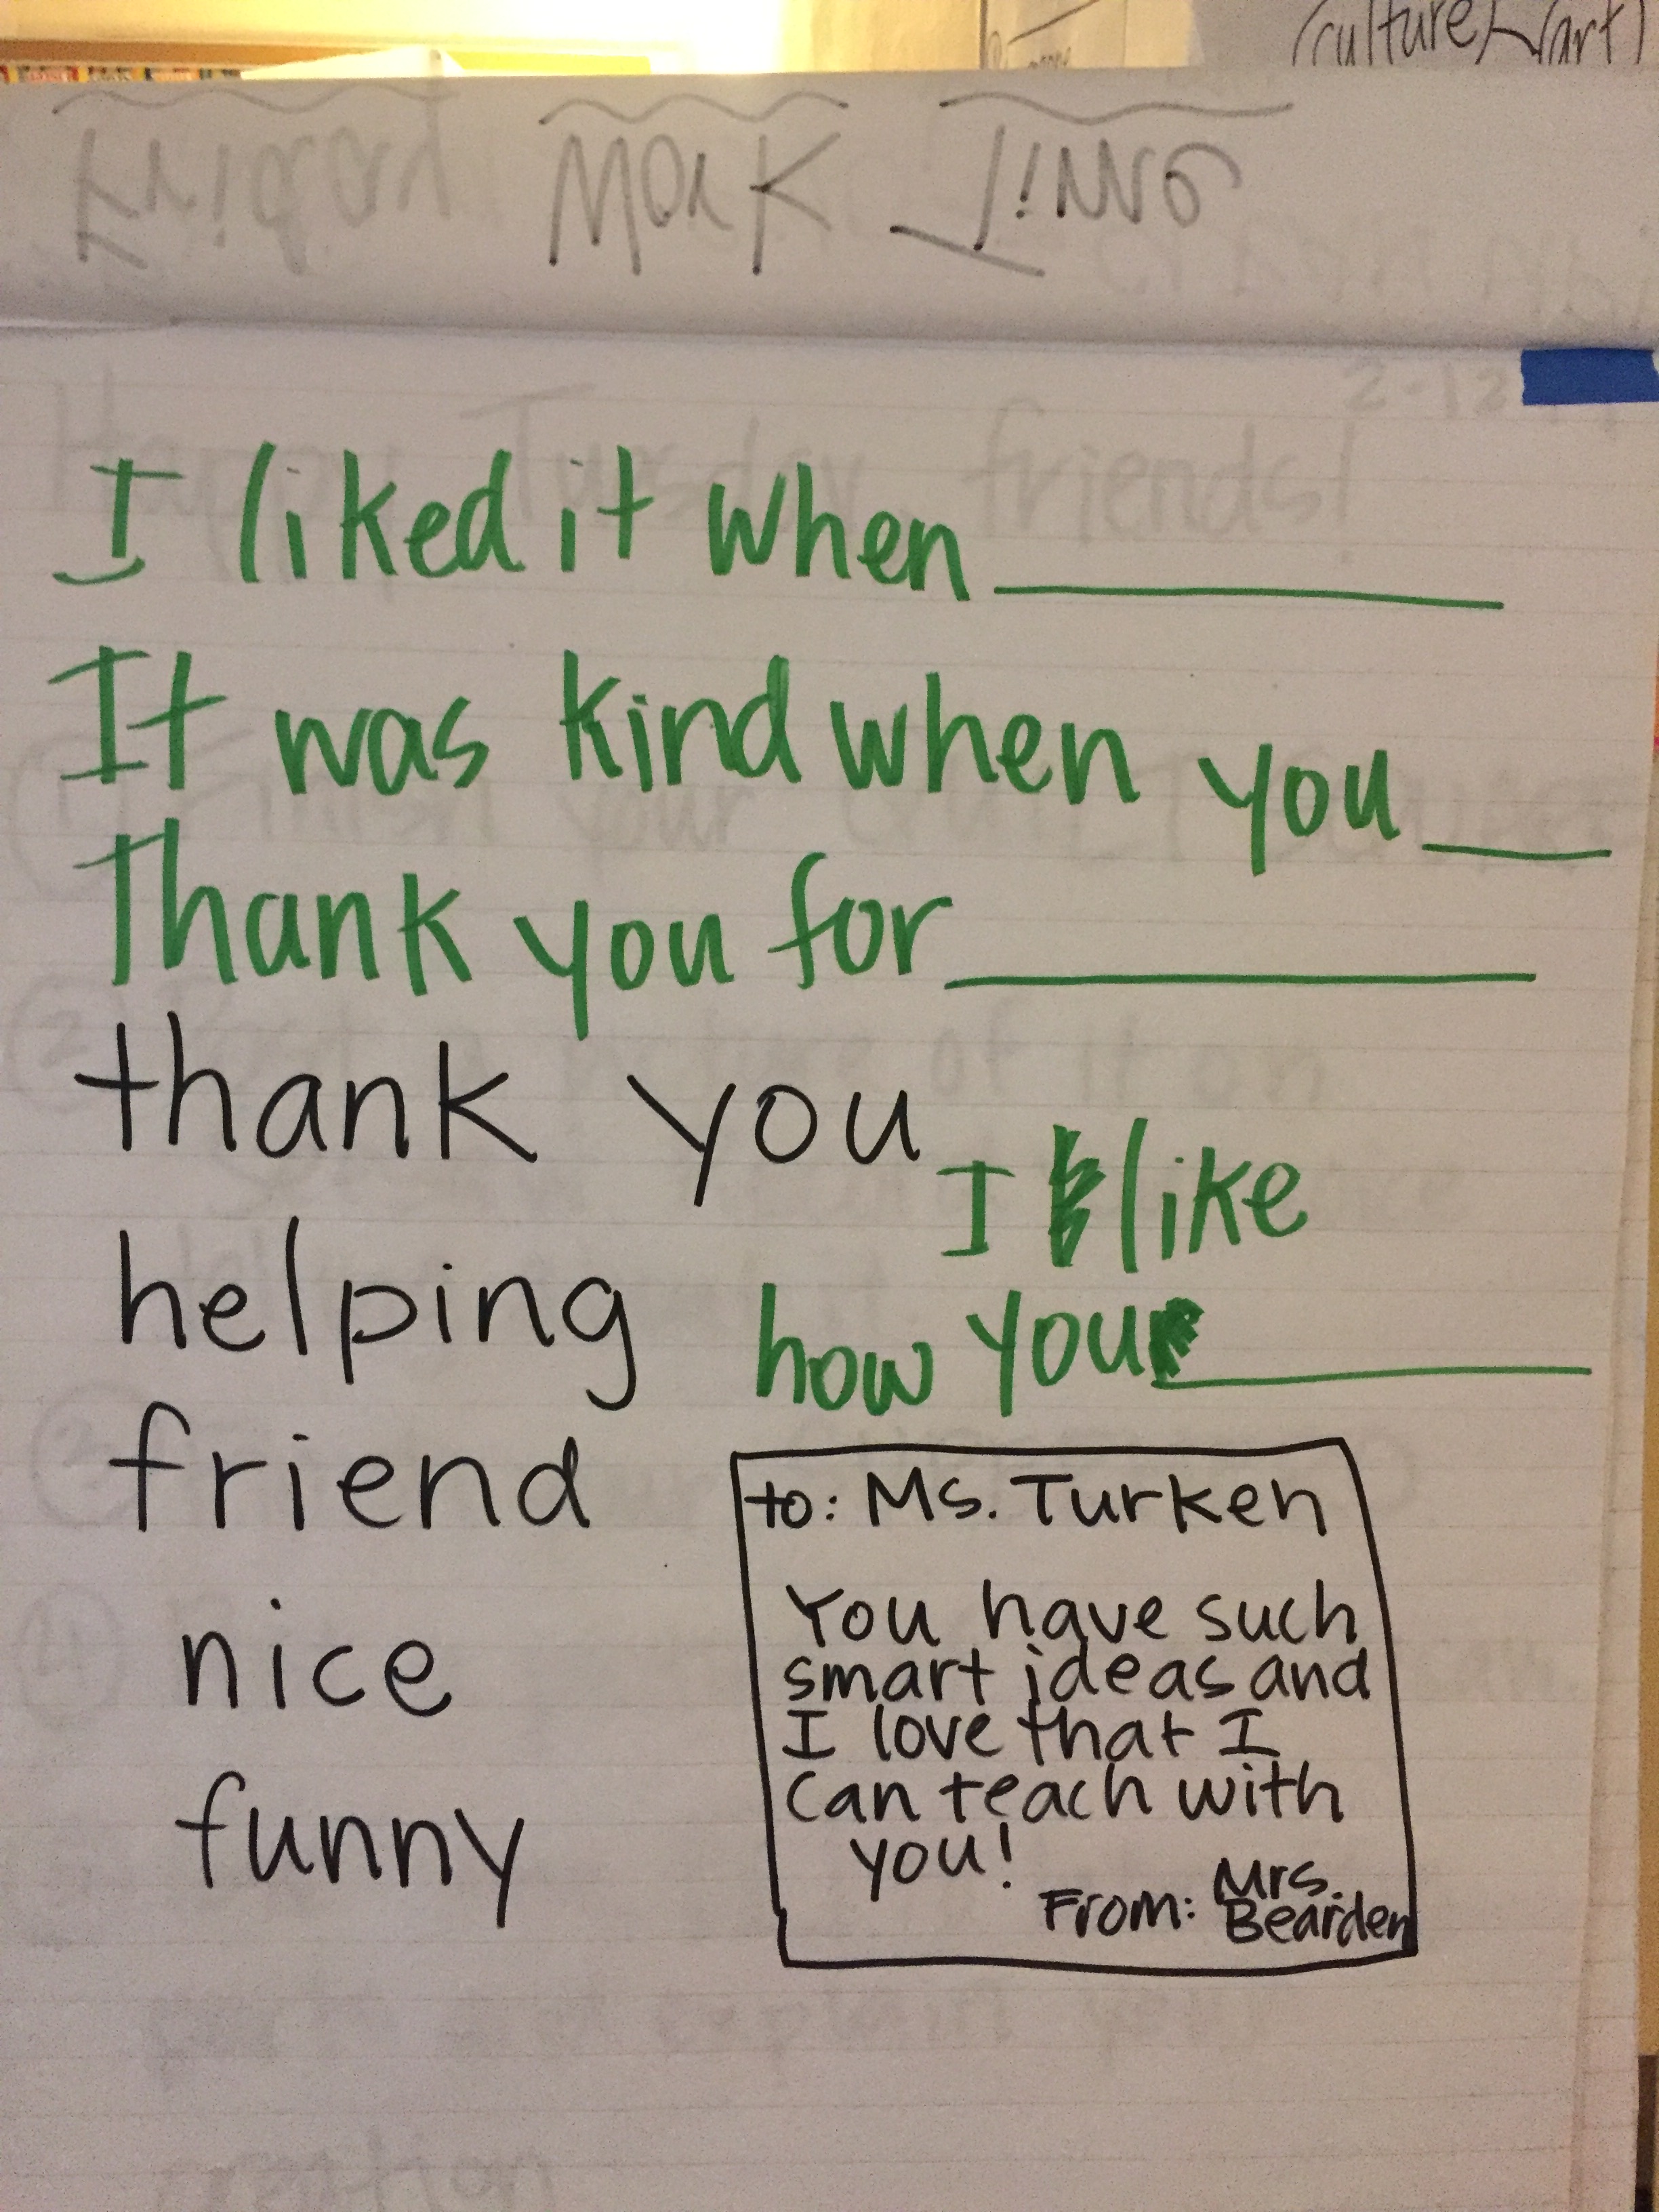 (culture) (art)
Friday Work Time
I liked it when
It was kind when you
Thank you for
thank you
I like
helping
how you
friend
nice
funny
to: Ms. Turken
You have such
smart ideas and
I love that I
can teach with
you!
From: Mrs.
Bearden
Happy Tuesday friends!
2-12